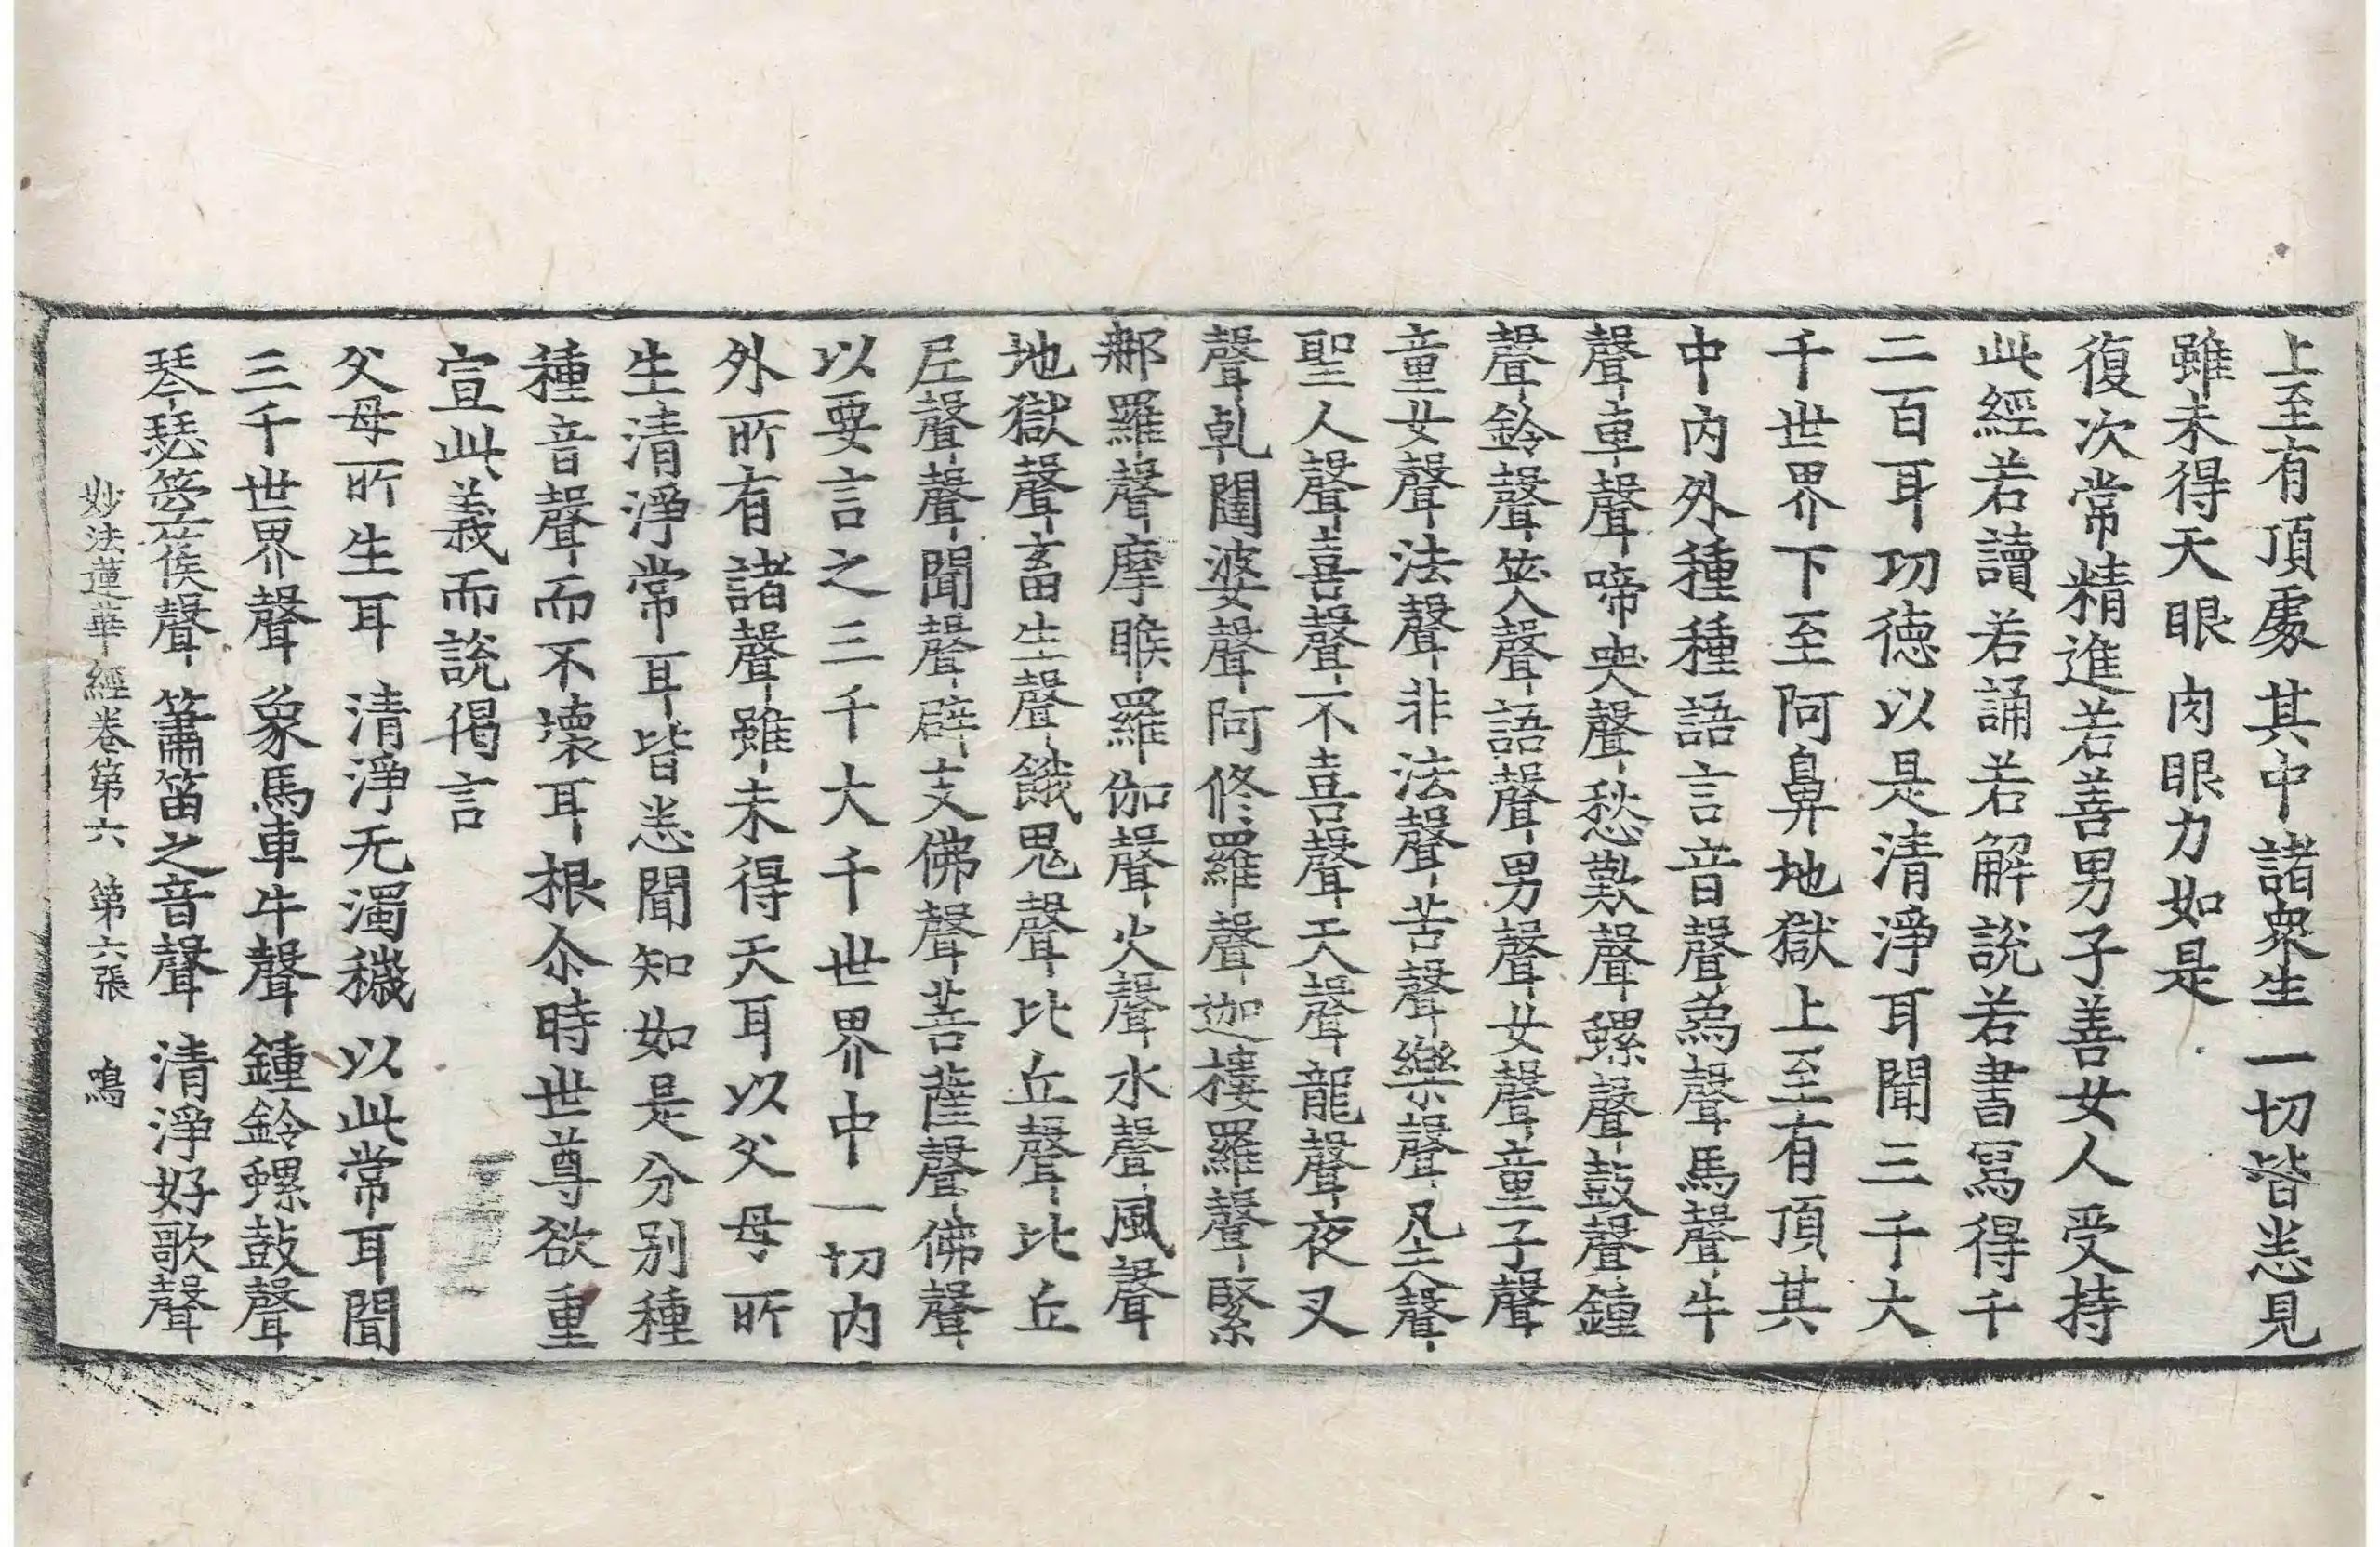 上至有頂處　其中諸衆生　一切皆悉見
雖未得天眼　肉眼力如是
復次常精進若善男子善女人受持
此經若讀若誦若解說若書寫得千
二百耳功德以是清淨耳聞三千大
千世界下至阿鼻地獄上至有頂其
中內外種種語言音聲爲聲馬聲牛
聲車聲啼哭聲愁歎聲螺聲鼓聲鐘
聲鈴聲笑聲語聲男聲女聲童子聲
童女聲法聲非法聲苦聲樂聲凡夫聲
聖人聲喜聲不喜聲天聲龍聲夜叉
聲乹闥婆聲阿修羅聲迦樓羅聲緊
郍羅聲摩睺羅伽聲火聲水聲風聲
地獄聲畜生聲餓鬼聲比丘聲比丘
尼聲聲聞聲辟支佛聲菩薩聲佛聲
以要言之三千大千世界中一切內
外所有諸聲雖未得天耳以父母所
生清淨常耳皆悉聞知如是分別種
種音聲而不壞耳根尒時世尊欲重
宣此義而說偈言
父母所生耳　清淨无濁穢　以此常耳聞
三千世界聲　象馬車牛聲　鐘鈴螺鼓聲
琴瑟箜篌聲　簫笛之音聲　清淨好歌聲
妙法蓮華經卷第六　第六張　鳴